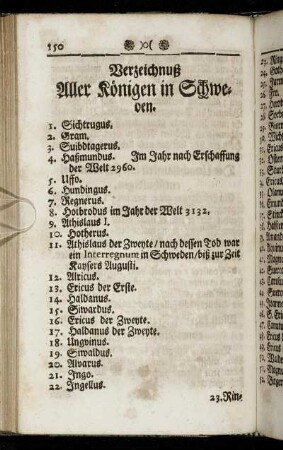 150
Verzeichnuß
Aller Königen in Schwe-
den.
1. Sichtrugus.
2. Gram.
3. Suibdtagerus.
4. Haßmundus. Im Jahr nach Erschaffung
der Welt 2960.
5. Uffo.
6. Hundingus.
7. Regnerus.
8. Holbrodus im Jahr der Welt 3132.
9. Athislaus I.
10. Hotherus.
11. Athislaus der Zweyte/ nach dessen Tod war
ein Interregnum in Schweden/ biß zur Zeit
Kaysers Augusti.
12. Alricus.
13. Ericus der Erste.
14. Haldanus.
15. Sivardus.
16. Ericus der Zweyte.
17. Haldanus der Zweyte.
18. Ungvinus.
19. Siwaldus.
20. Alvarus.
21. Ingo.
22. Ingellus.
23. Rin-